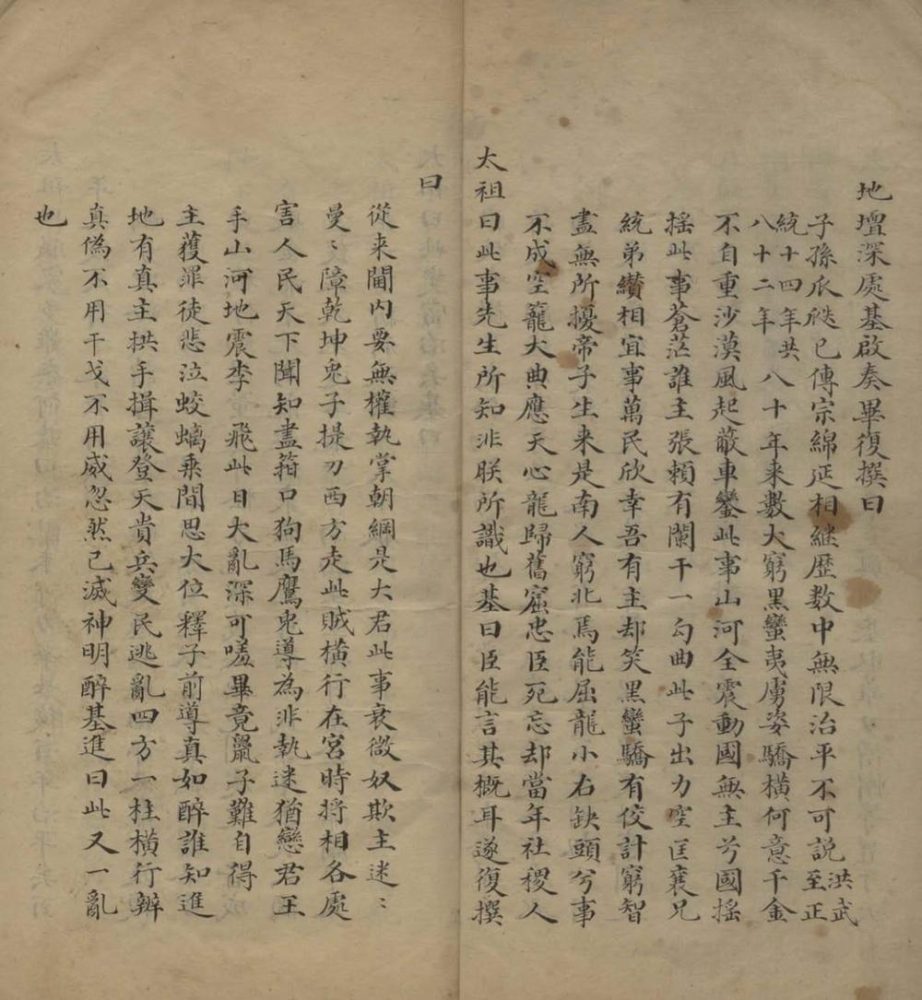 地壇深處基啟奏畢復撰曰
子孫瓜瓞已傳宗綿延相継歷数中無限治平不可説洪武至正
統十四年共八十二年八十年来數大窮黑蠻夷虜姿驕橫何意千金
不自重沙漠風起蔽車鑾此事山河全震動國無主兮國揺
揺此事蒼茫誰主張賴有闌干一勾曲此子出力空匡襄兄
統弟纘相宜事萬民欣幸吾有主却笑黑蠻驕有佼計窮智
盡無所擾帝子生来是南人窮北焉能屈龍小右缺頭兮事
不成空籠大典應天心龍歸舊窟忠臣死忘却當年社稷人
太祖曰此事先生所知非朕所識也基曰臣能言其概耳遂復撰
曰
從来閫内要無權執掌朝綱是大君此事衰微奴欺主迷﹕
曼﹕障乾坤兔子提刀西方走此賊横行在宮時将相各處
害人民天下聞知盡箝口狗馬鷹兔導為非執迷猶戀君王
手山河地震李飛此日大亂深可嗟畢竟鼠子難自得
主獲罪徒悲泣蛟螭乘間思大位釋子前導真如醉誰知進
地有真主拱手揖讓登天貴兵變民逃亂四方一柱横行辨
真偽不用干戈不用威忽然已滅神明醉基進曰此又一亂
也